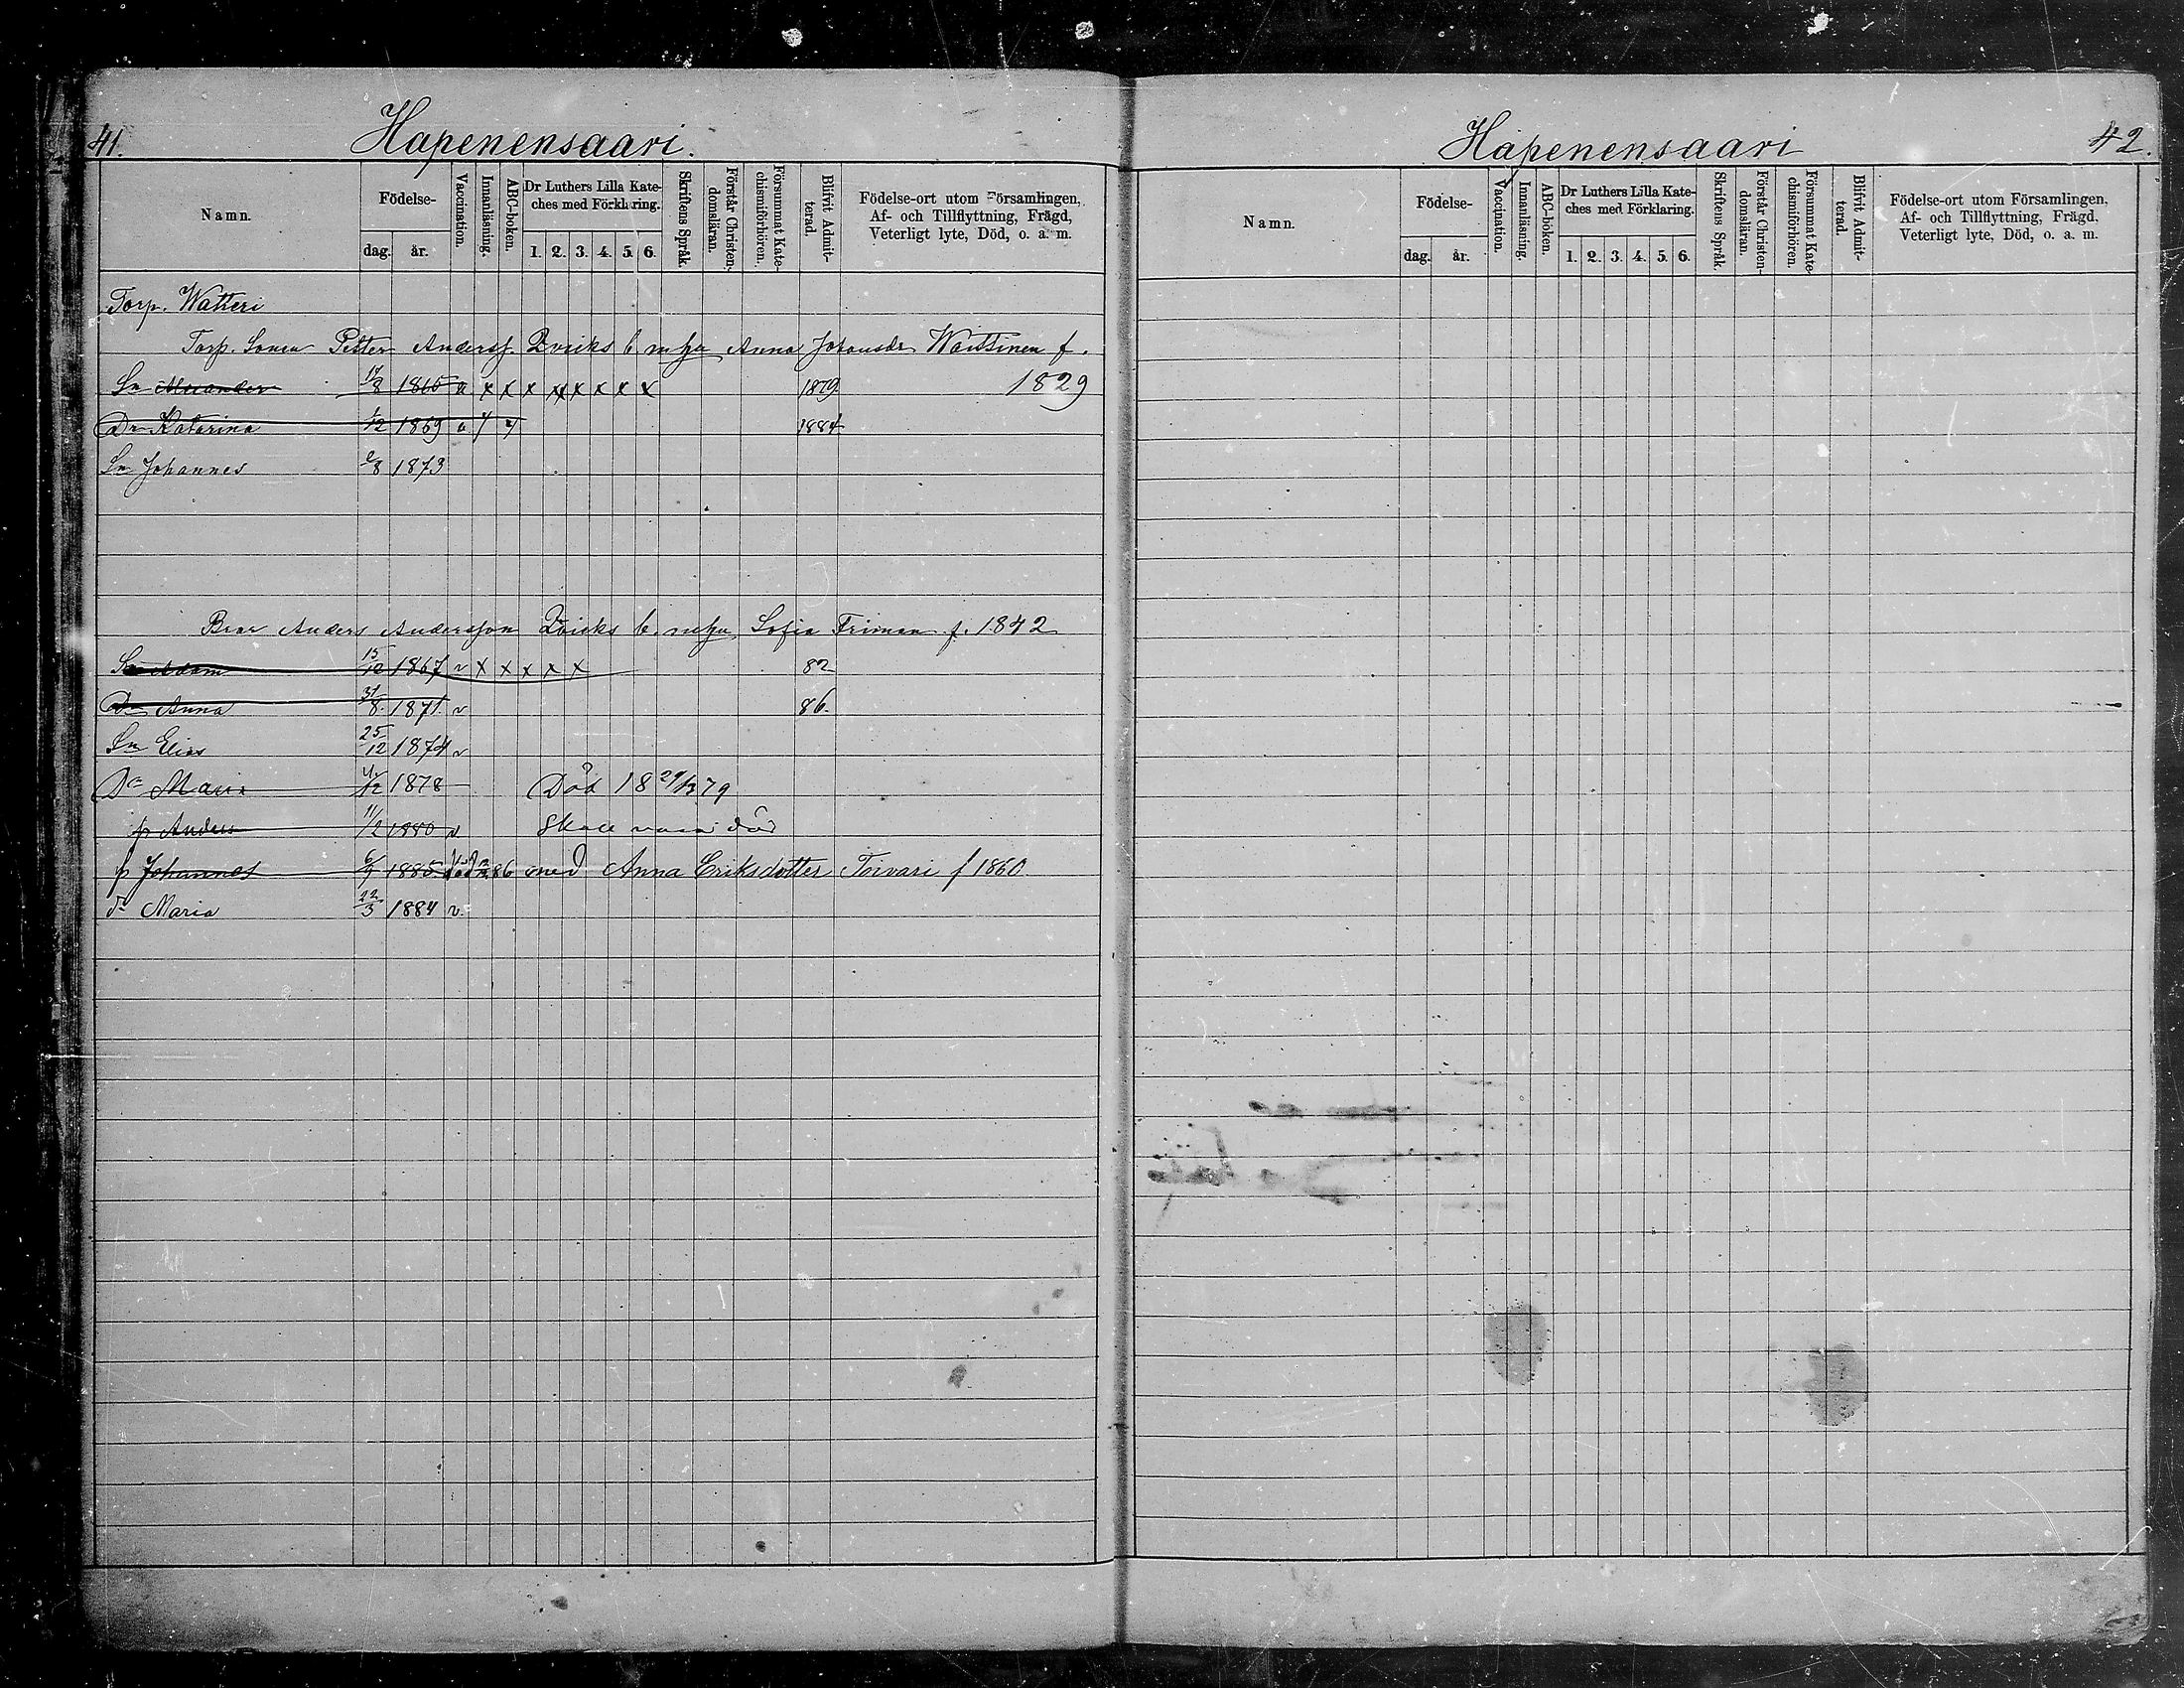 41. Hapenensaari.
Namn. Födelse- dag. år. Vaccination. Innanläsning. ABC-boken. Dr Luthers Lilla Kateches med Förklaring. 1. 2. 3. 4. 5. 6. Skriftens Språk. Förstår Christendomsläran. Försummat Katechismiförhören. Blifvit Admitterad. Födelse-ort utom Församlingen, Af- och Tillflyttning, Frägd, Veterligt lyte, Död, o. a. m.
Torp. Watteri
Torp. Sonen Petter Anderss. Qvicks b. m hu Anna Johansdr Waittinen f.
Sn Alexander 17/8 1865 v x x x x x x x x 1879 1829
Dr Katarina 1/12 1869 v 1884
Sn Johannes 2/8 1873
Bror Anders Andersson Qvicks b. m hu Sofia Friman f. 1842
Sn Adam 15/12 1867 v x x x x x 82
Dr Anna 31/8 1871 v 86.
Sn Elias 25/12 1874 v
Dr Maria 4/12 1878 Död 18 29/12 79
p Anders 11/2 1880 v. Skall vara död
p Johannes 6/7 1885 86 med Anna Eriksdotter Toivari f 1860
dr Maria 22/3 1884 v.
Hapenensaari 42.
Namn. Födelse- dag. år. Vaccination. Innanläsning. ABC-boken. Dr Luthers Lilla Kateches med Förklaring. 1. 2. 3. 4. 5. 6. Skriftens Språk. Förstår Christendomsläran. Försummat Katechismiförhören. Blifvit Admitterad. Födelse-ort utom Församlingen, Af- och Tillflyttning, Frägd, Veterligt lyte, Död, o. a. m.